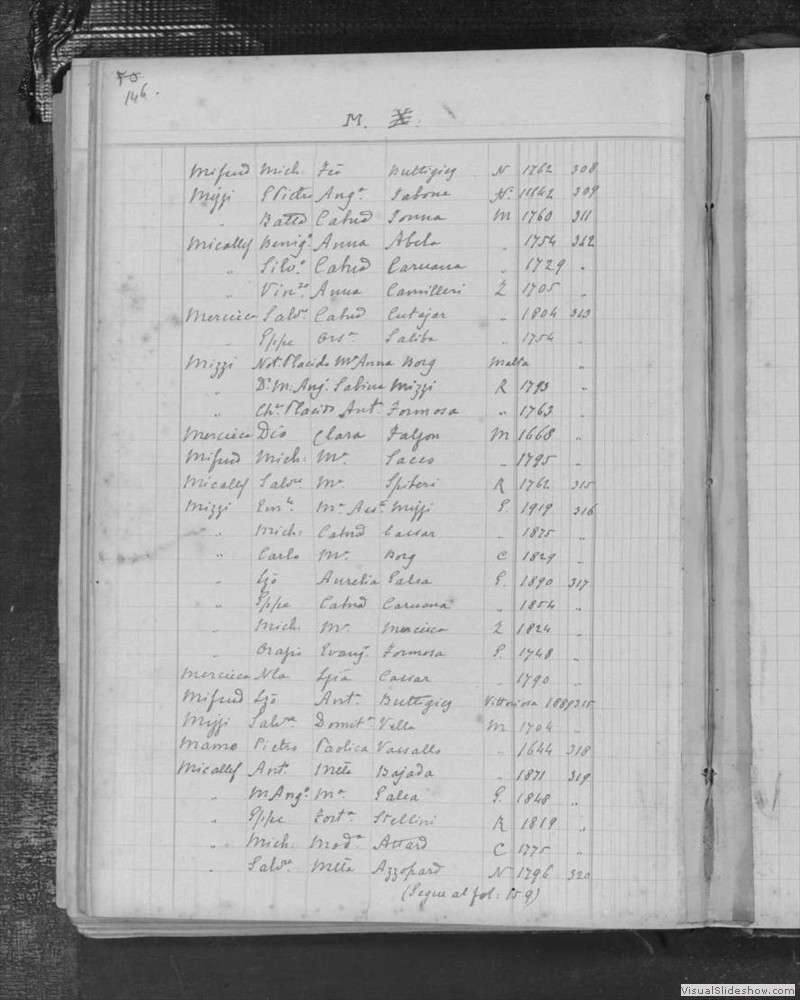 70
146.
M. X.
Mifsud Mich. Fco Buttigieg N 1762 308
Mizzi P Pietro Ang.a Sabone N. 1842 309
" Batta Catnd Sonna M 1760 311
Micallef Benig.o Anna Abela " 1754 312
" Silv.o Catnd Caruana " 1729 "
" Vin.zo Anna Camilleri Z 1705 "
Mercieca Salv.e Catnd Cutajar " 1804 313
" Gppe Ors.a Saliba " 1754 "
Mizzi Not. Placido M.a Anna Borg Malta "
" D.r M. Ang. Sabina Mizzi R 1793 "
" Ch.o Placido Ant. Formosa " 1763 "
Mercieca Dco Clara Falzon M 1668 "
Mifsud Mich. M.a Sacco " 1795 "
Micallef Salv.re M.a Spiteri R 1762 315
Mizzi Em.le M.a Ass.a Mizzi G. 1919 316
" Mich. Catnd Cassar " 1875 "
" Carlo M.a Borg C 1829 "
" Lzo Aurelia Galea G. 1890 317
" Gppe Catnd Caruana " 1854 "
" Mich. M.a Mercieca Z 1824 "
" Orazio Evang. Formosa G. 1748 "
Mercieca Nla Lzia Cassar " 1790 "
Mifsud Lzo Ant.a Buttigieg Vittoriosa 1889 315
Mizzi Salv.re Domit.a Vella M 1704 "
Mamo Pietro Paolica Vassallo " 1644 318
Micallef Ant. Mtta Bajada " 1871 319
" M Ang.o M.a Galea G. 1848 "
" Gppe Fort.a Stellini R 1819 "
" Mich. Mod.a Attard C 1775 "
" Salv.re Mtta Azzopard N 1796 320
(Segue al fol: 159)
VisualSlideshow.com